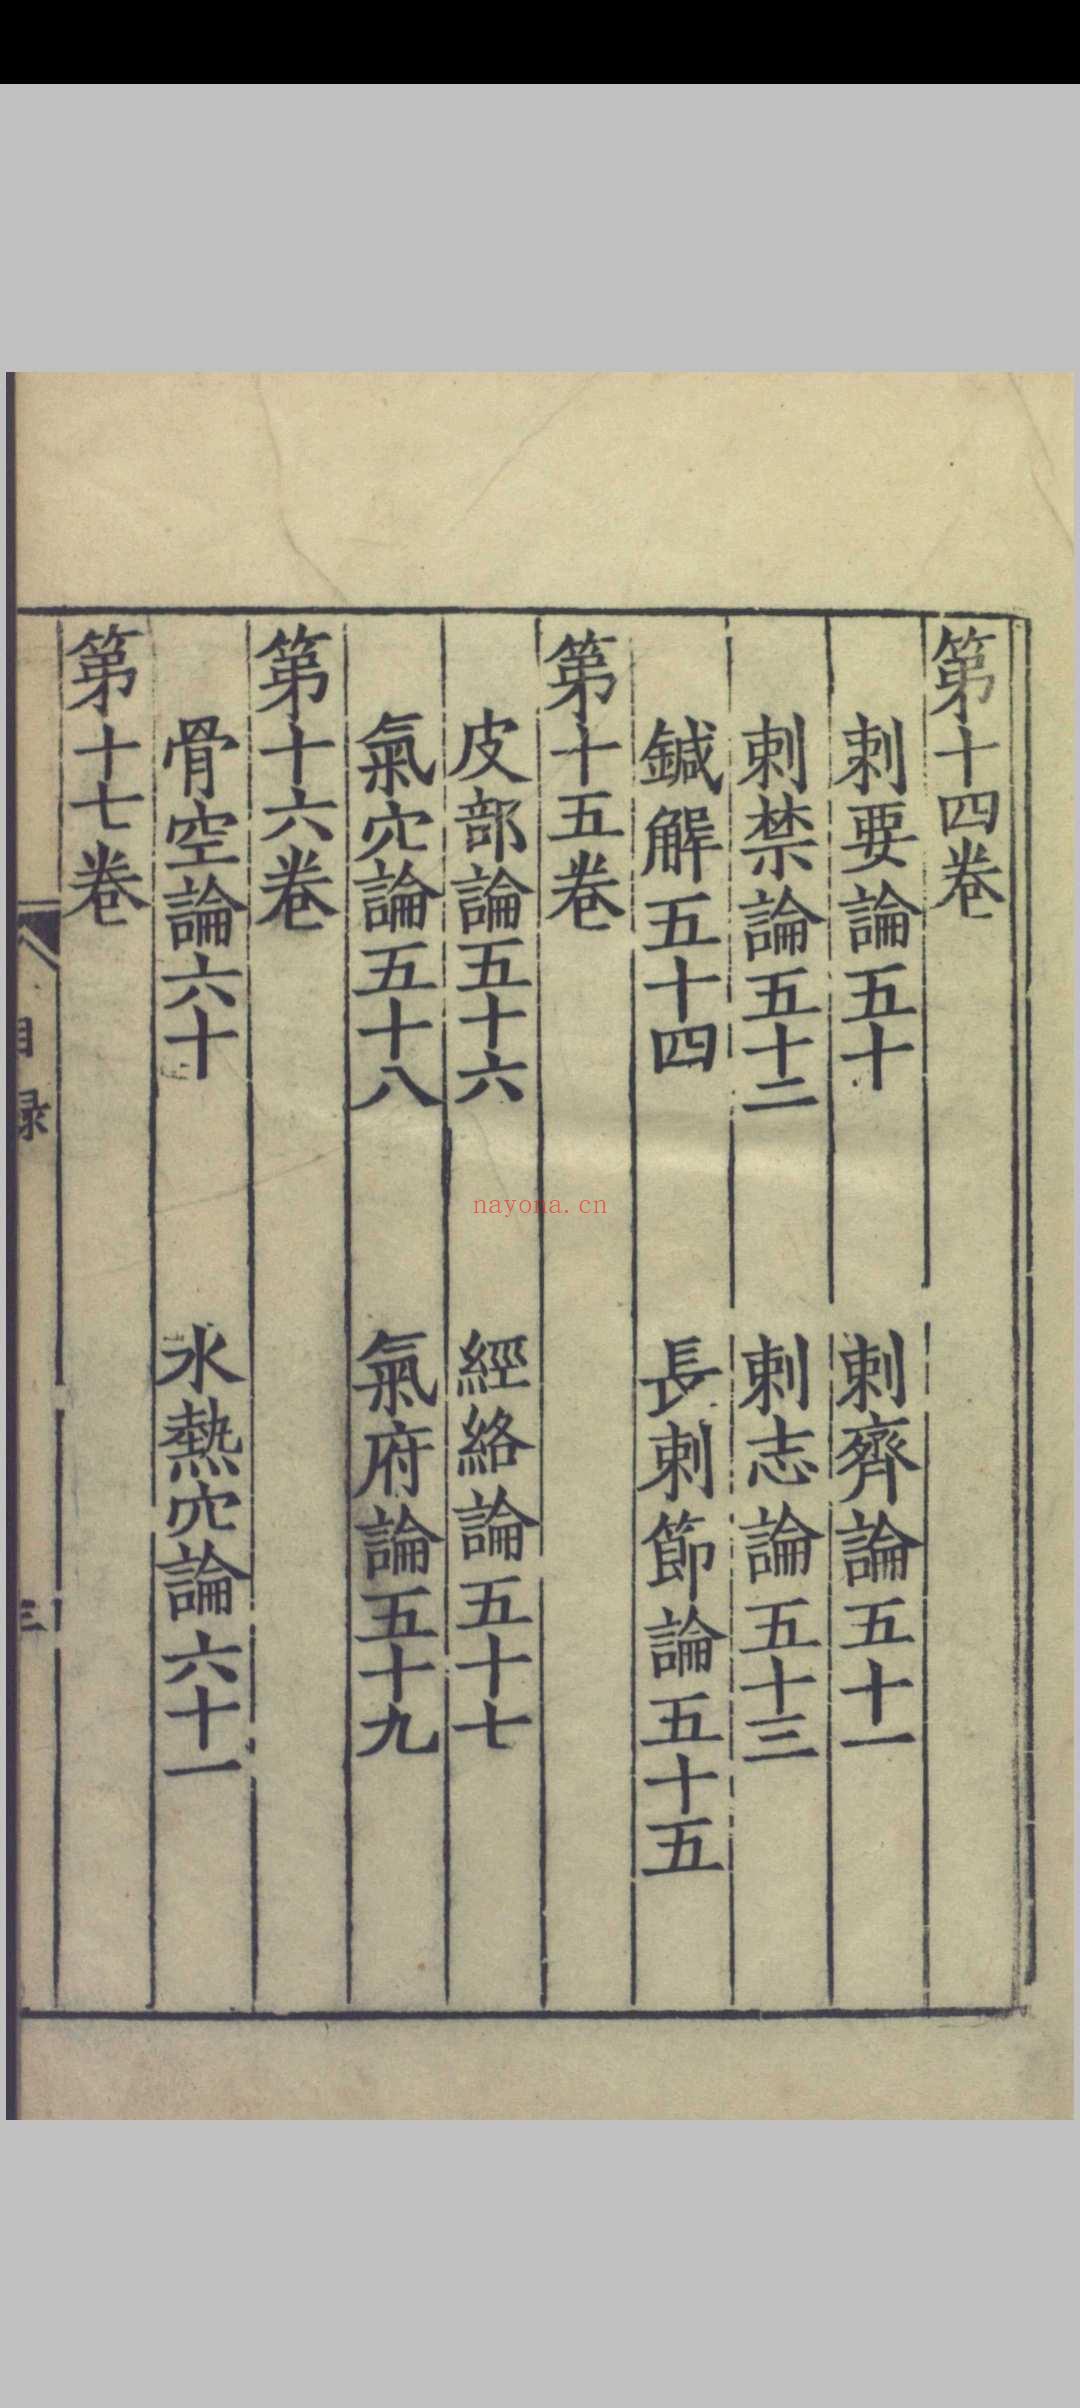 第十四卷
刺要論五十 刺齊論五十一
刺禁論五十二 刺志論五十三
鍼解五十四 長刺節論五十五
第十五卷
皮部論五十六 經絡論五十七
氣穴論五十八 氣府論五十九
第十六卷
骨空論六十 水熱穴論六十一
第十七卷
目錄 三
nayona.cn